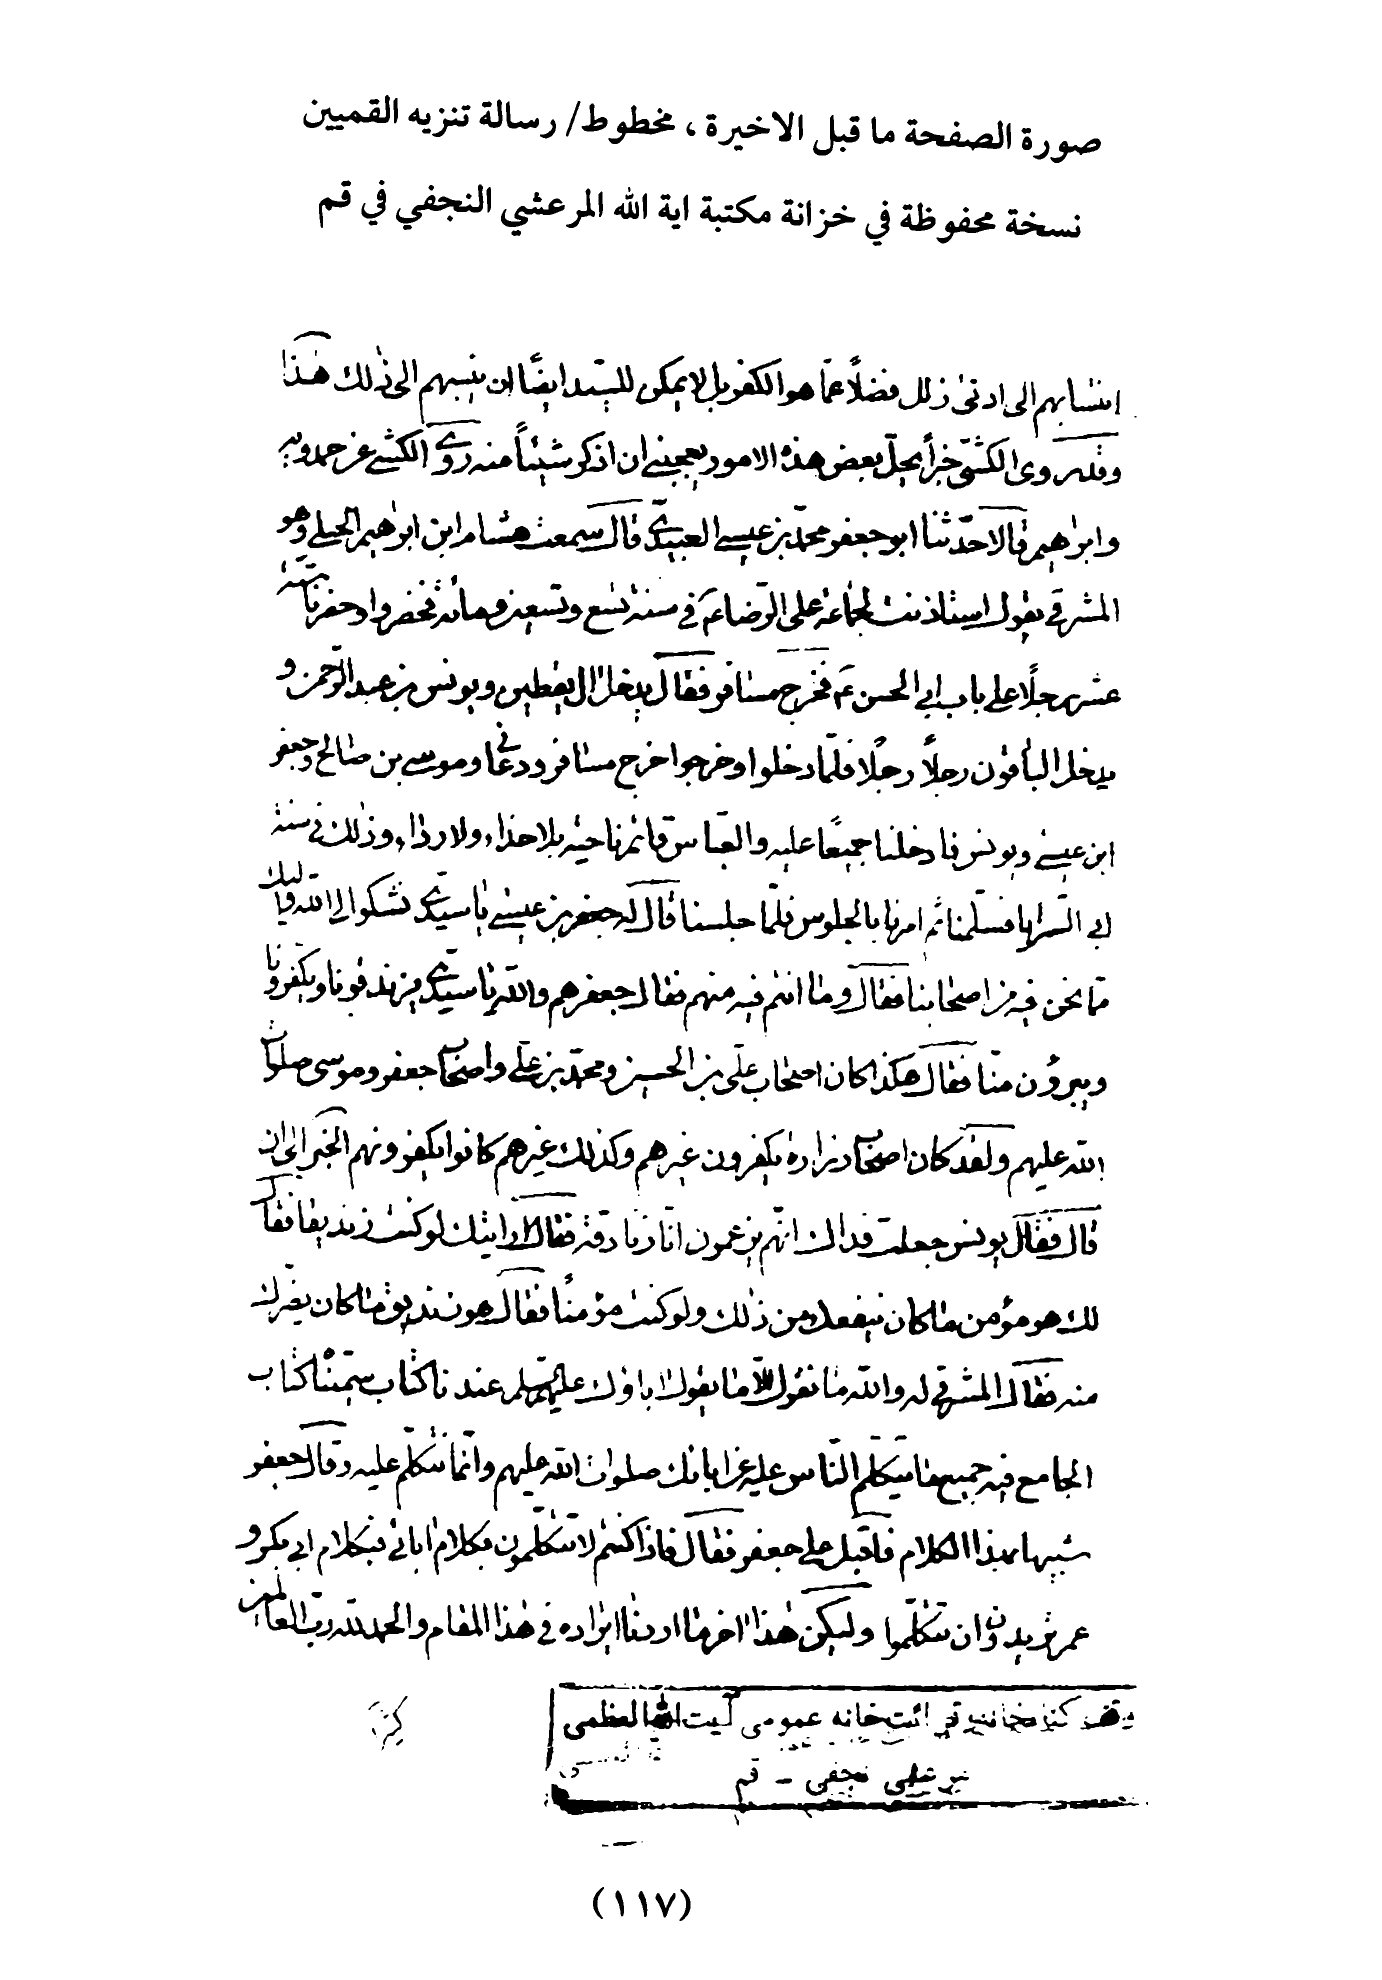 صورة الصفحة ما قبل الاخيرة ، مخطوط/ رسالة تنزيه القميين
نسخة محفوظة في خزانة مكتبة اية الله المرعشي النجفي في قم
انتسابهم الى ادنى ذلك فضلاً عمّا هو الكفر بل لا يمكن للسيّد ايضًا ان ينسبهم الى ذلك هذا
وقد روى الكشّي خبراً يحلّ بعض هذه الامور يعجبني ان اذكر شيئاً منه روى الكشي عن حمدويه
وابراهيم قالا حدّثنا ابو جعفر محمّد بن عيسى العبيدي قال سمعت هشام ابن ابراهيم الجبلي وهو
المشرقي يقول استاذنت لجماعة على الرّضا ع في سنة تسع وتسعين ومائة فحضروا وحضرنا ستّة
عشر رجلًا على باب ابي الحسن ع فخرج مسافر فقال يدخل ال يقطين ويونس بن عبد الرّحمن و
يدخل الباقون رجلاً رجلًا فلمّا دخلوا وخرجوا خرج مسافر ودعاني وموسى بن صالح وجعفر
ابن عيسى ويونس فادخلنا جميعًا عليه والعباس قائم ناحية بلا حذاء ولا رداء وذلك في سنة
ابي السّرايا فسلّمنا ثم امرنا بالجلوس فلمّا جلسنا قال له جعفر بن عيسى يا سيّدي نشكوا الى الله واليك
ممّا نحن فيه من اصحابنا فقال وما انتم فيه منهم فقال جعفر هم والله يا سيّدي يزندقونا ويكفرونا
ويبرؤن منّا فقال هكذا كان اصحاب علي بن الحسين ومحمّد بن علي واصحاب جعفر وموسى صلوات
الله عليهم ولقد كان اصحاب زرارة يكفرون غيرهم وكذلك غيرهم كانوا يكفرونهم الخبر الى ان
قال فقال يونس جعلت فداك انّهم يزعمون انّا زنادقة فقال ارايتك لو كنت زنديقا فقال
لك هو مؤمن ما كان ينفعك من ذلك ولو كنت مؤمنًا فقال هو زنديق ما كان يضرّك
منه فقال المشرقي له والله ما نقول الّا ما يقول اباؤك عليهم السلام عندنا كتاب سمّيناه كتاب
الجامع فيه جميع ما يتكلّم النّاس عليه عن ابائك صلوات الله عليهم وانّما نتكلّم عليه وقال جعفر
شبيها بهذا الكلام فاقبل على جعفر فقال فاذا كنتم لا تتكلّمون بكلام ابائي فبكلام ابي بكر و
عمر تريدون ان تتكلّموا وليكن هذا اخر ما اردنا ايراده في هذا المقام والحمد لله ربّ العالمين
وقف كتابخانه و قرائت خانه عمومى آيت الله العظمى
نجفى - قم
(١١٧)